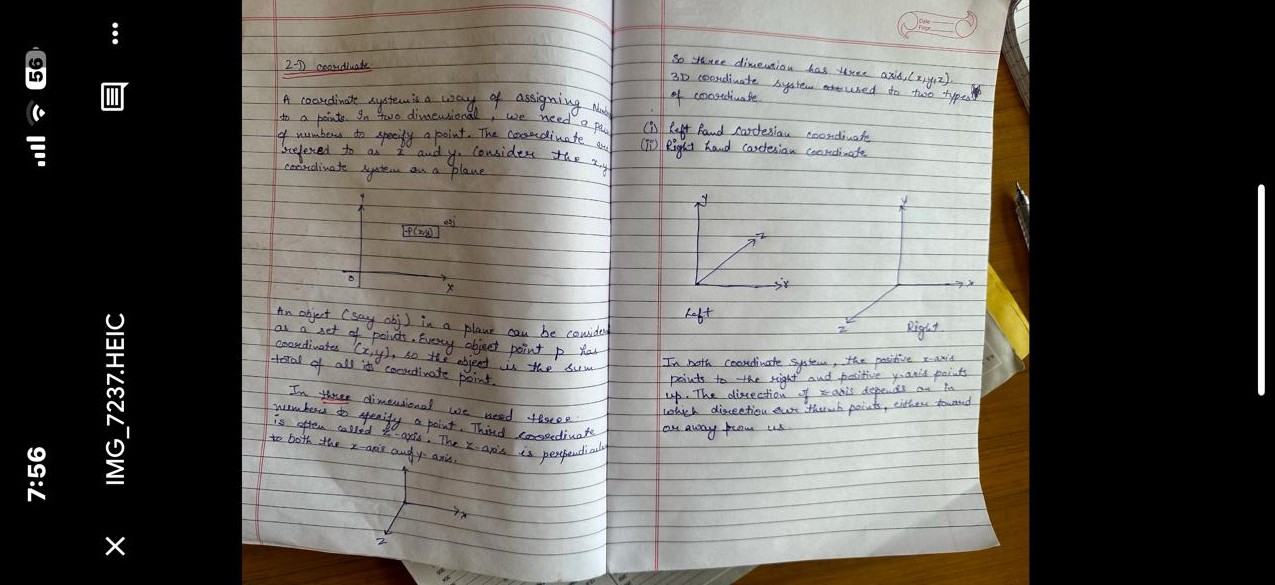 56
7:56
IMG_7237.HEIC
2-D coordinate
A coordinate system is a way of assigning Numbers
to a points. In two dimensional, we need a pair
of numbers to specify a point. The coordinate are
refered to as x and y. Consider the x,y
coordinate system on a plane
Y
P(x,y)
obj
0
X
An object (say obj) in a plane can be consider
as a set of points. Every object point p has
coordinates (x,y), so the object is the sum
total of all its coordinate point.
In three dimensional we need three
numbers to specify a point. Third coordinate
is often called z-axis. The z-axis is perpendicular
to both the x-axis and y-axis.
x
Z
Date
Page
So three dimension has three axis, (x,y,z).
3D coordinate system used to two types
of coordinate.
(i) Left hand cartesian coordinate
(ii) Right hand cartesian coordinate
y
Z
x
Left
y
x
Z
Right
In both coordinate system, the positive x-axis
points to the right and positive y-axis points
up. The direction of z-axis depends on in
which direction our thumb points, either toward
or away from us.